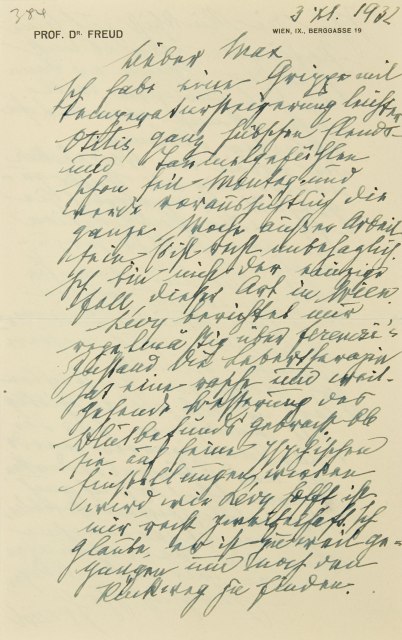 384
3. XI. 1932
PROF. DR. FREUD
WIEN, IX., BERGGASSE 19
Lieber Max
Ich habe eine Grippe mit
Temperatursteigerung leichter
Otitis, ganz hübschen Elends-
und Taumelgefühlen
schon seit Montag und
werde voraussichtlich die
ganze Woche außer Arbeit
sein. Ist recht unbehaglich
Ich bin nicht der einzige
Fall dieser Art in Wien
Lévy berichtet mir
regelmäßig über Ferenczi's
Zustand. Die Lebertherapie
hat eine rasche und weit-
gehende Besserung des
Blutbefunds gebracht. Ob
sie auf seine psychischen
Einstellungen wirken
wird wie Lévy hofft ist
mir recht zweifelhaft. Ich
glaube, er ist zu weit ge-
gangen um noch den
Rückweg zu finden.